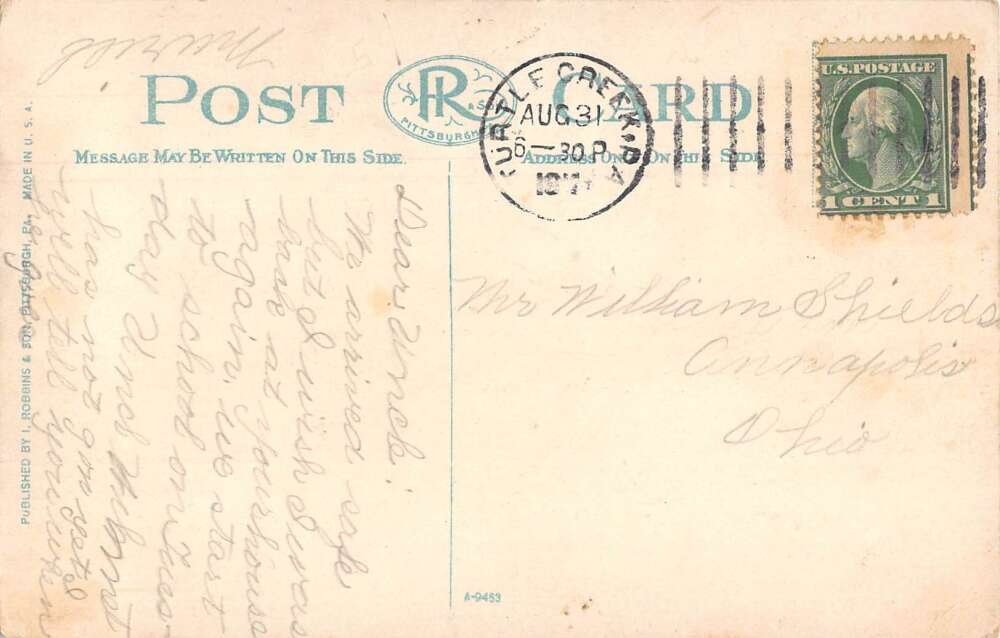 POST CARD
R & SON
PITTSBURGH
MESSAGE MAY BE WRITTEN ON THIS SIDE.
ADDRESS ONLY ON THIS SIDE
TURTLE CREEK, PA
AUG 31
6–30 P
U.S. POSTAGE
1 CENT 1
Dear Uncle
We arrived safe
but I wish I was
back at your house
again. We start
to school on Tues-
day Uncle
has not gon yet
Will tell you when
Mr William Shields
Annapolis
Ohio
PUBLISHED BY I. ROBBINS & SON, PITTSBURGH, PA. MADE IN U. S. A.
A-9453